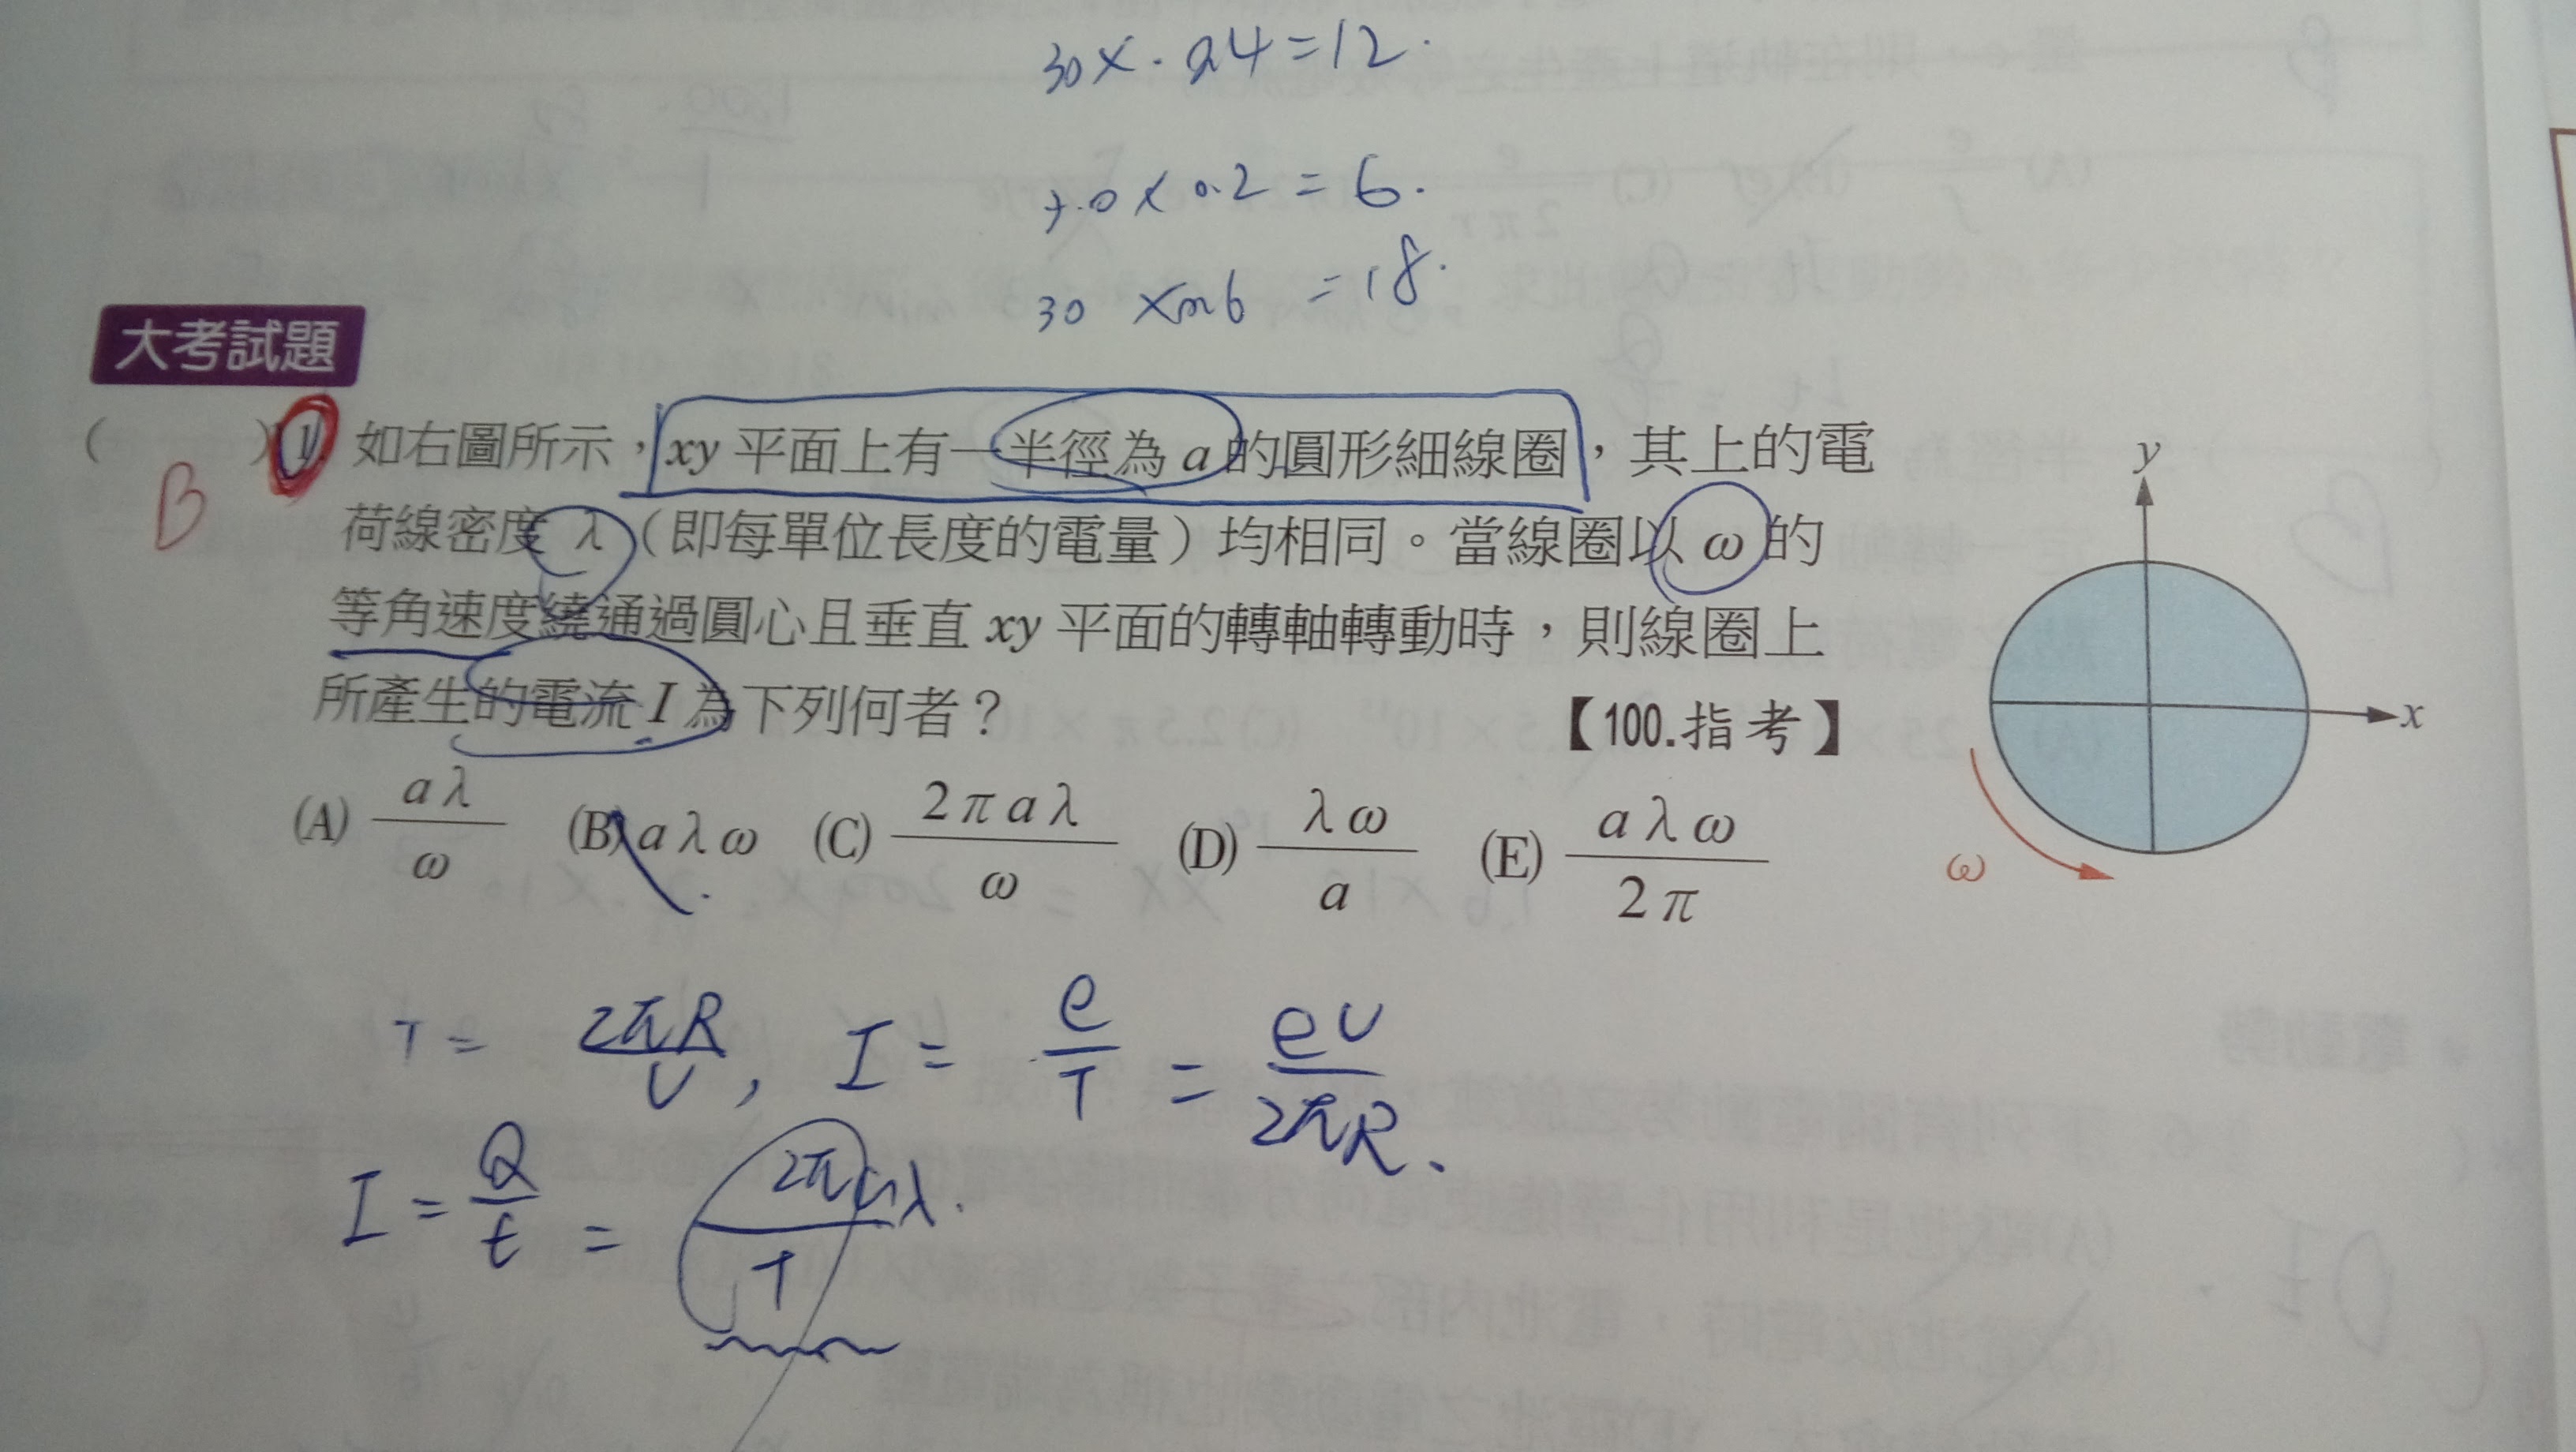 30 × 0.4 = 12.
30 × 0.2 = 6.
30 × 0.6 = 18.
大考試題
( B ) 1. 如右圖所示，xy 平面上有一半徑為 a 的圓形細線圈，其上的電
荷線密度 λ（即每單位長度的電量）均相同。當線圈以 ω 的
等角速度繞通過圓心且垂直 xy 平面的轉軸轉動時，則線圈上
所產生的電流 I 為下列何者？ 【100.指考】
(A) aλ/ω (B) aλω (C) 2πaλ/ω (D) λω/a (E) aλω/2π
y
x
ω
T = 2πR/v , I = e/T = ev/2πR.
I = Q/t = 2πaλ/T.